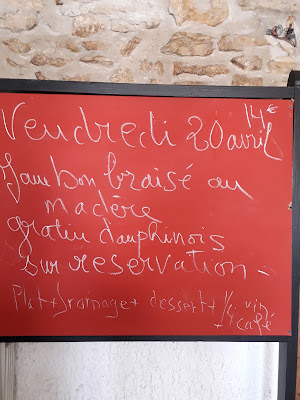 14€
Vendredi 20 avril
Jambon braisé au
madère
gratin dauphinois
sur reservation -
Plat + fromage + dessert + 1/4 vin
+ café